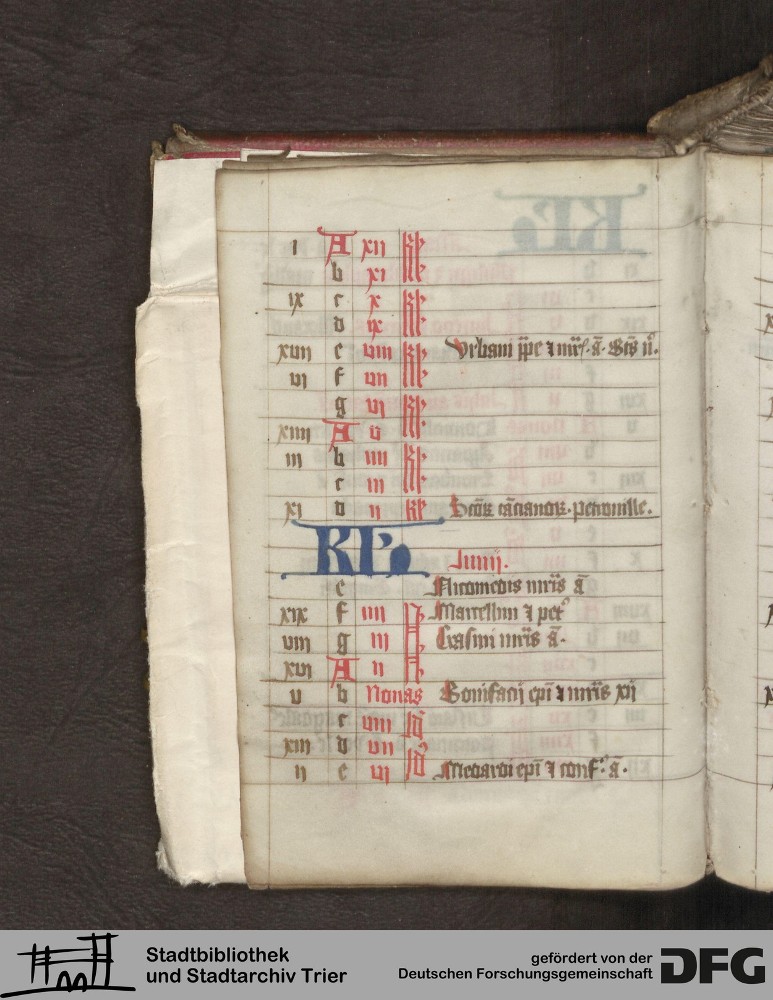 i A xii kl
b xi kl
ix c x kl
d ix kl
xvii e viii kl Vrbani ppe ⁊ mr̃s. ã.
vi f vii kl
g vi kl
xiiii A v kl
iii b iiii kl
c iii kl
xi d ii kl Scõꝝ cãcianoꝝ. petronille.
KL Iunij.
e Nicomedis mr̃is ã
xix f iiii N Marcellini ⁊ pet⁹
viii g iii N Erasmi mr̃is ã.
xvi A ii N
v b Nonas Bonifacij ep̃i ⁊ mr̃is xij
c viii Id⁹
xiii d vii Id⁹
ii e vi Id⁹ Medardi ep̃i ⁊ conf. ã.
Stadtbibliothek
und Stadtarchiv Trier
gefördert von der
Deutschen Forschungsgemeinschaft
DFG